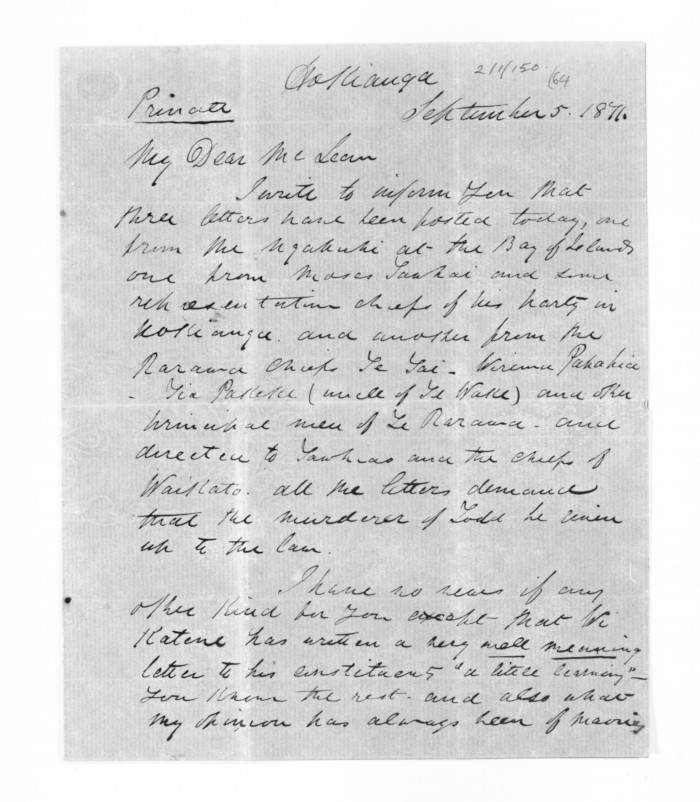 Hokianga 2/1/150 (64
Private September 5. 1871.
My Dear McLean
I write to inform you that
three letters have been posted today, one
from the Ngapuhi at the Bay of Islands
one from Moses Tawhai and some
representation chiefs of his party in
Hokianga. and another from the
Rarawa chiefs Te Tai - Wirema
- Tia Pakeke (uncle of Te Wake) and other
principal men of Te Rarawa - and
directed to Tawhiao and the chiefs of
Waikato. all the letters demand
that the murderer of Todd be given
up to the law.
I have no news if any
other kind for you except that Wi
Katene has written a very well meaning
letter to his constituents "a little learning" -
you know the rest. and also what
my opinion has always been of maories